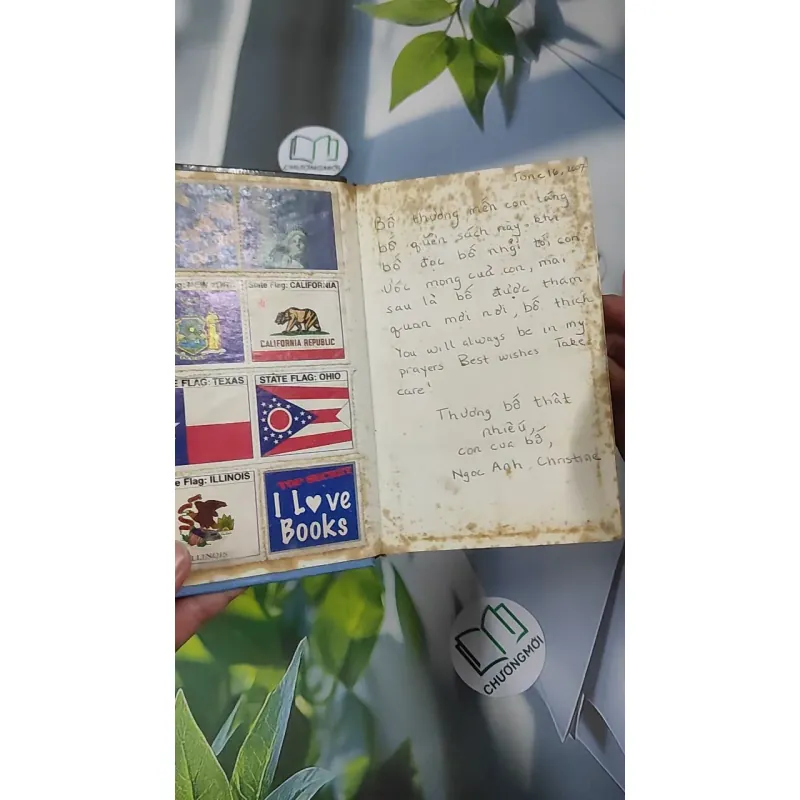 CHƯƠNGMỚI
State Flag: CALIFORNIA
CALIFORNIA REPUBLIC
FLAG: TEXAS
STATE FLAG: OHIO
Flag: ILLINOIS
ILLINOIS
TOP SECRET
I L♥ve
Books
June 16,
Bố thương mến con tặng
bố quển sách này. khi
bố đọc bố nhớ tới con
Ước mong của con, mai
sau là bố được tham
quan mọi nơi, bố thích
You will always be in my
prayers Best wishes Take
care!
Thương bố thật
nhiều,
con của bố,
Ngoc Anh, Christine
CHƯƠNGMỚI